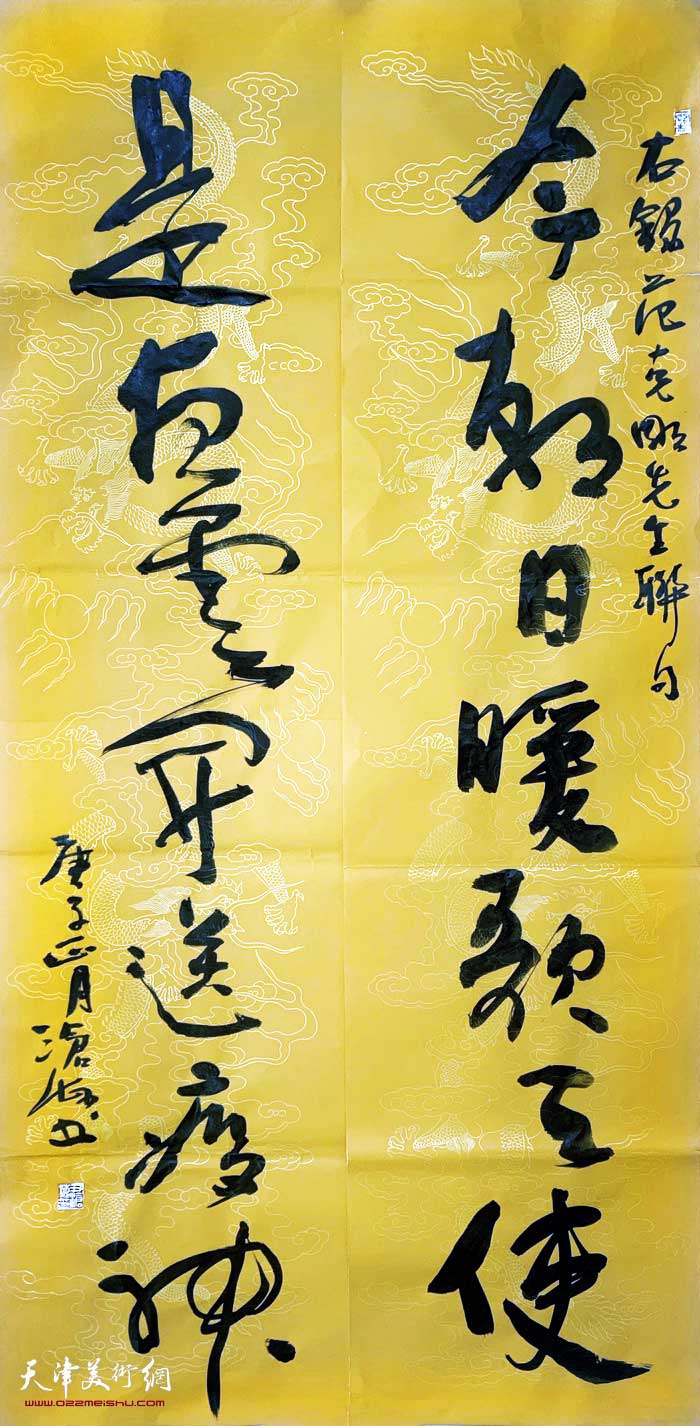 右錄范克明先生聯句
今朝日暖歌天使
是雲開送疫神
庚子正月滄海书
天津美術網
www.022meishu.com